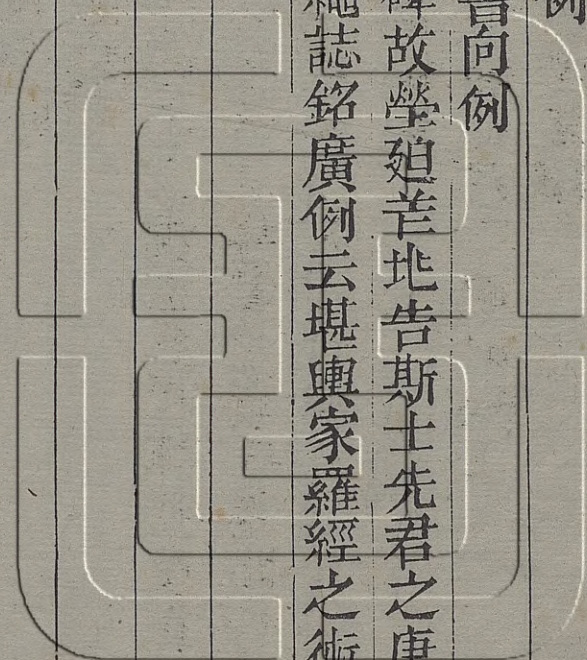 例
書向例
碑故塋廹地告斯士先君之
繩誌銘廣例云堪輿家羅經之術